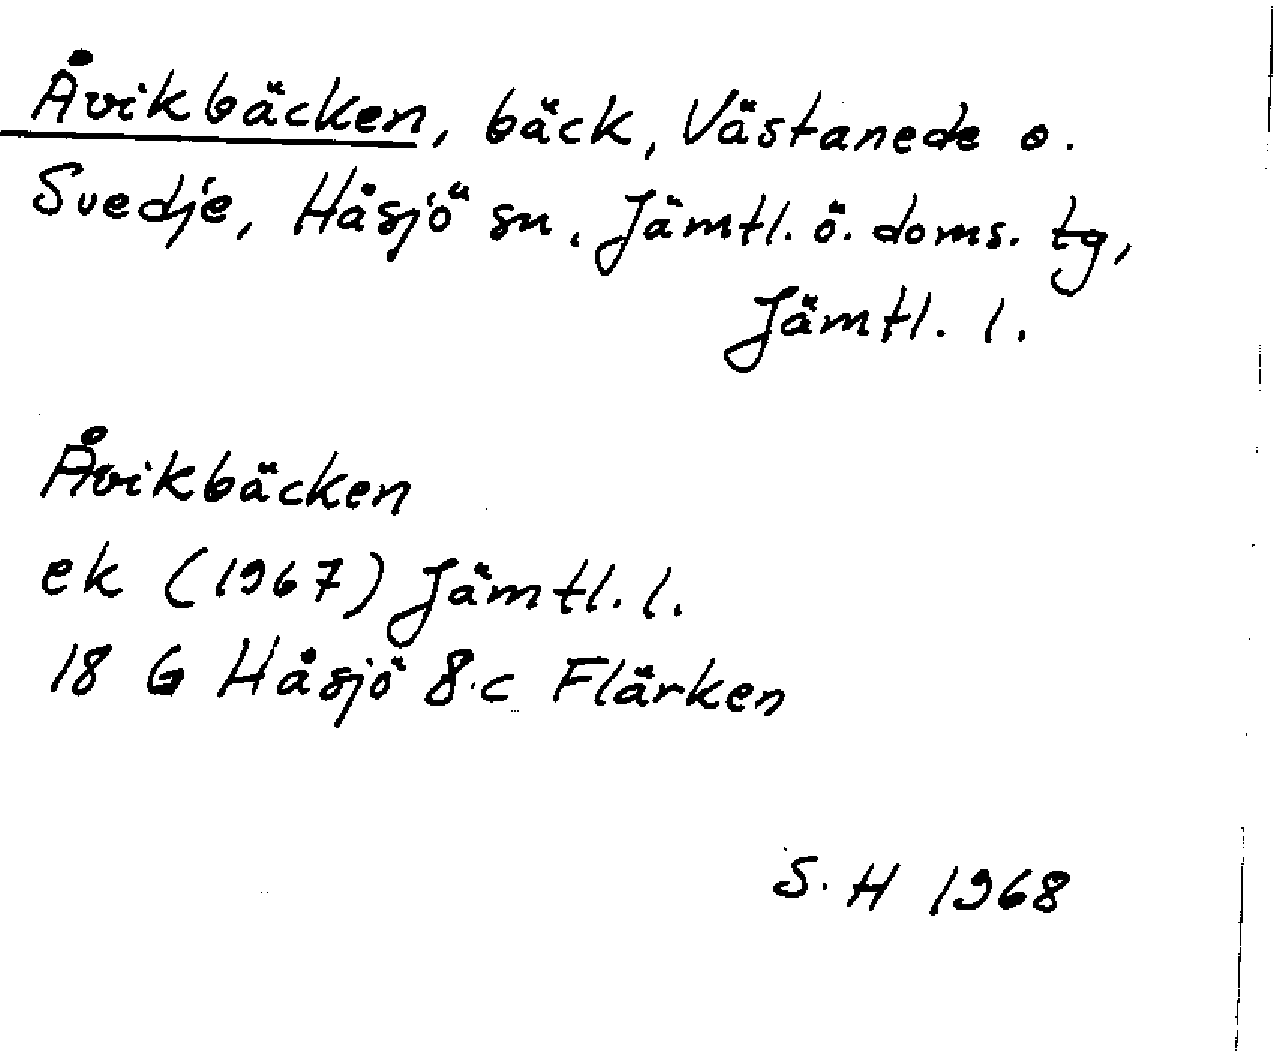 Åvikbäcken, bäck, Västanede o.
Svedje, Håsjö sn, Jämtl. ö. doms. tg,
Jämtl. l.
Åvikbäcken
ek (1967) Jämtl. l.
18 G Håsjö 8.c Flärken
S. H 1968